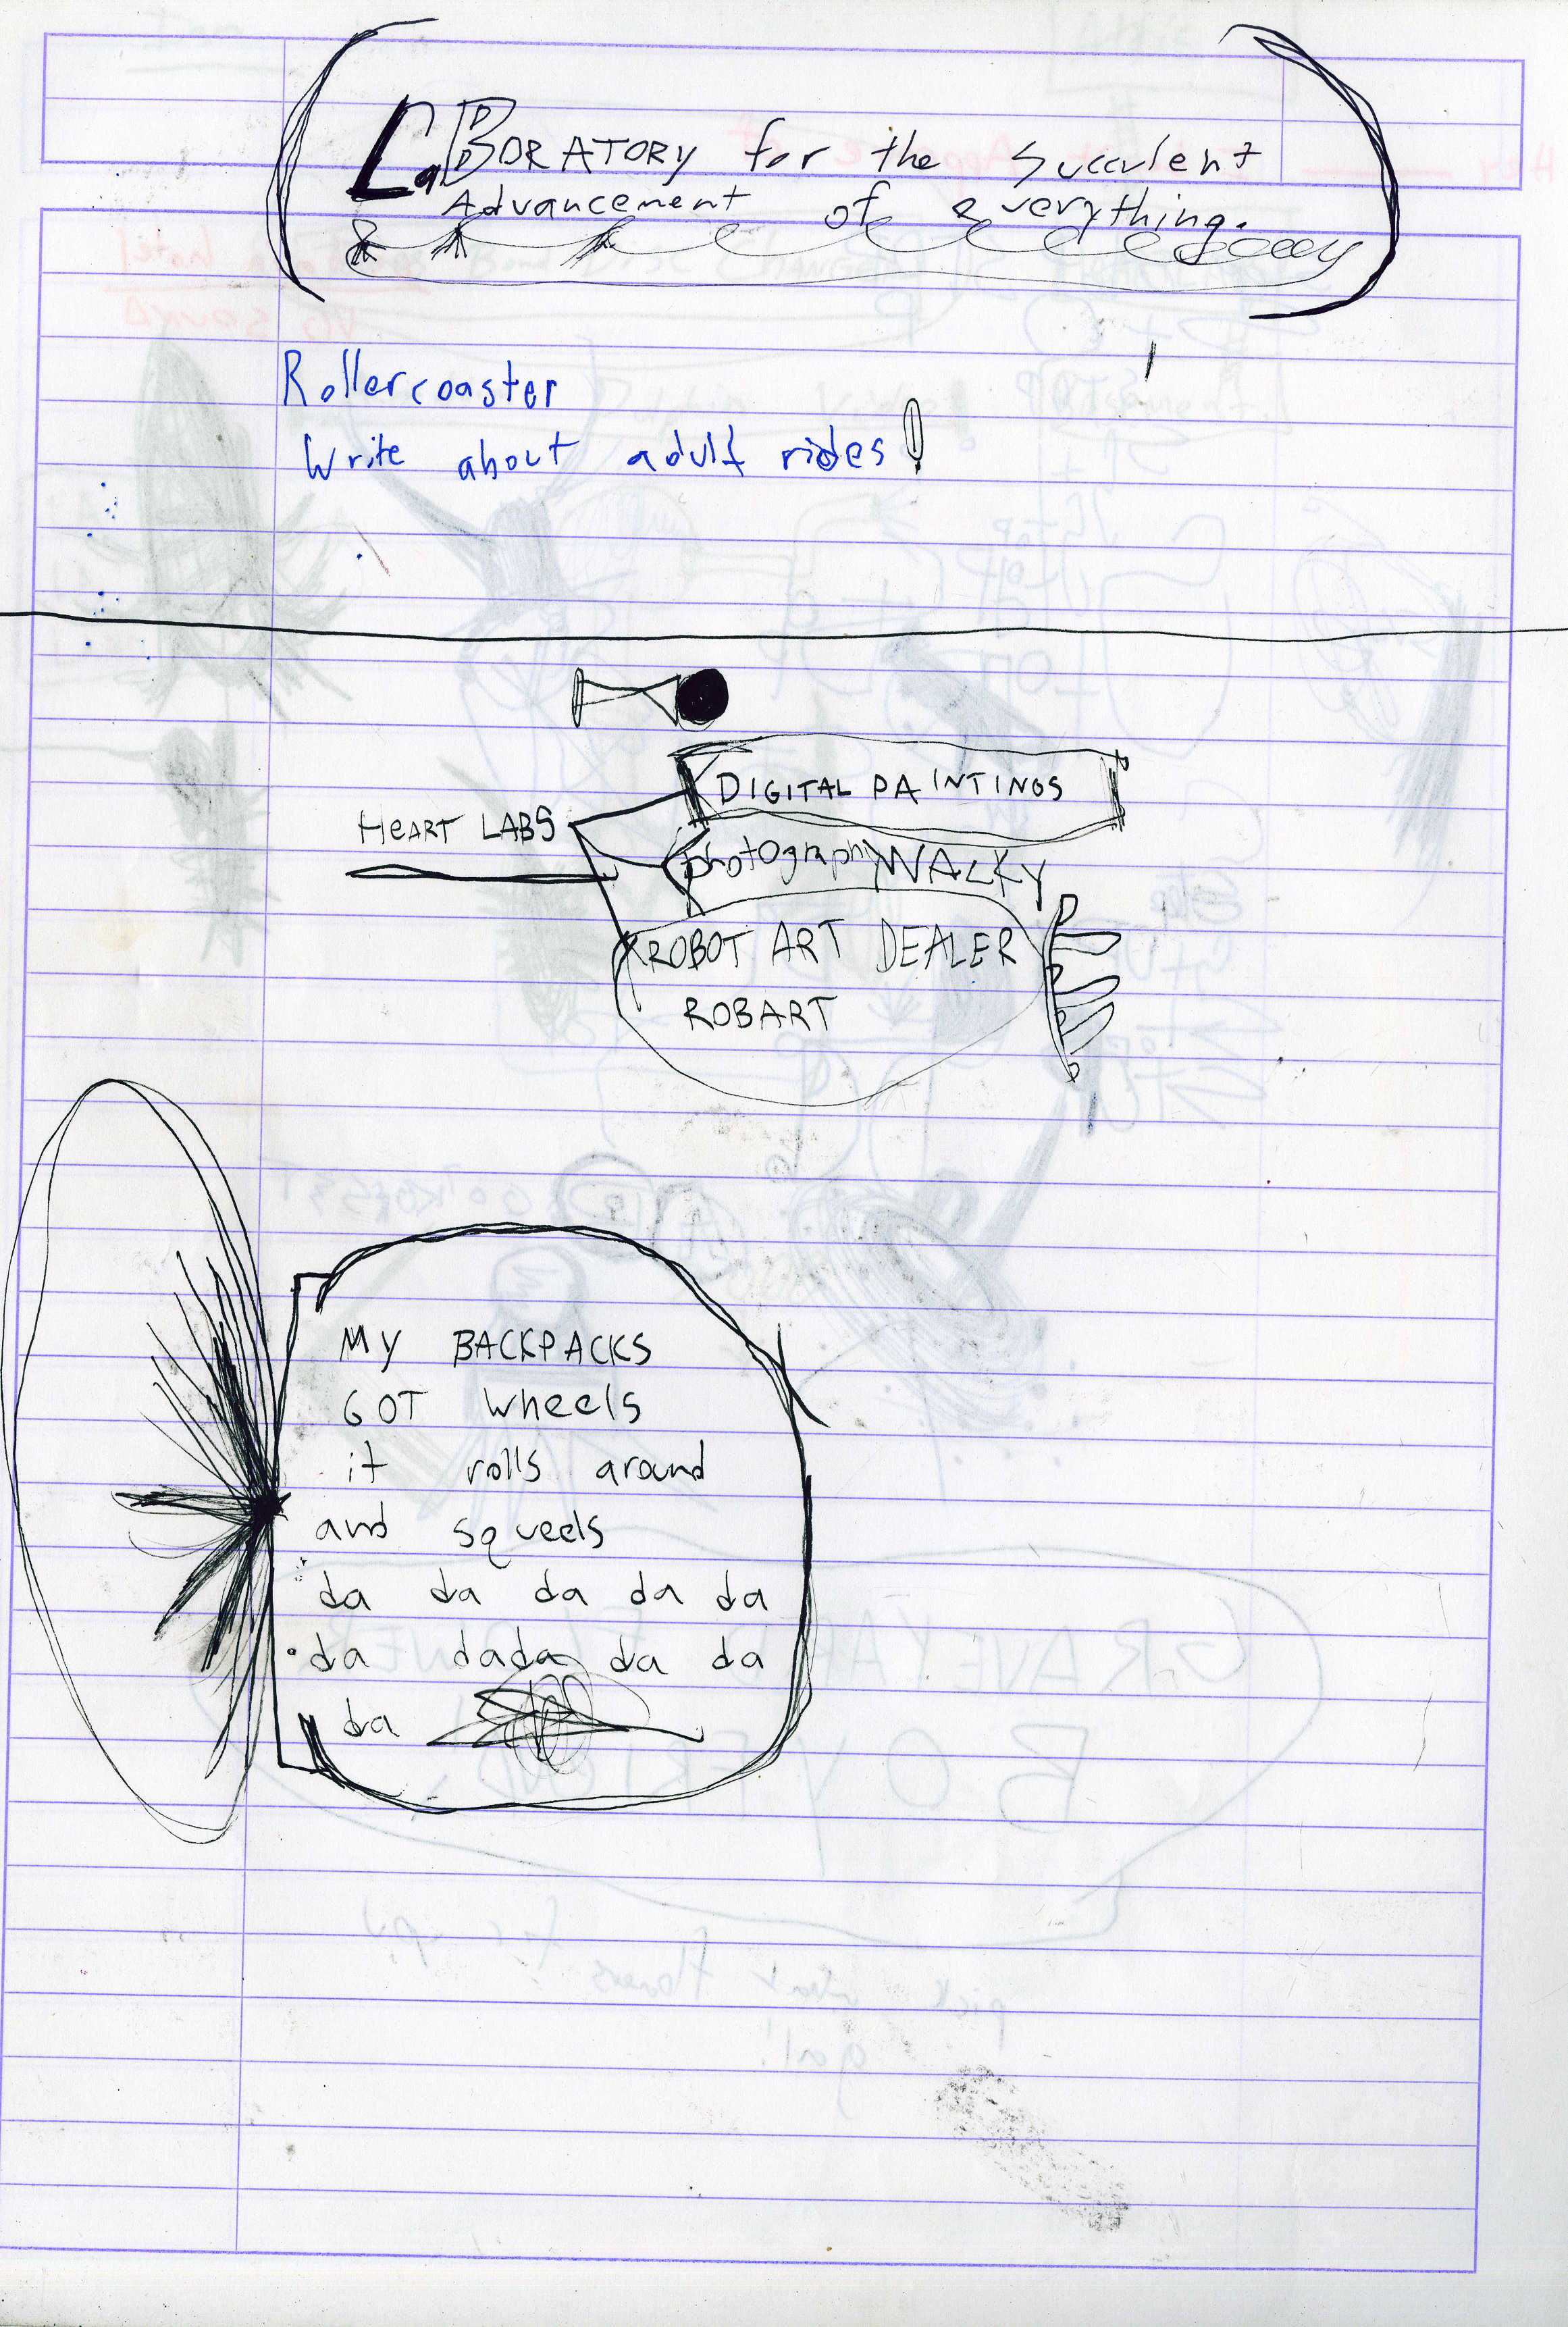 LaBORATORY for the Succulent
Advancement of everything.
Rollercoaster
Write about adult rides!
DIGITAL PAINTINGS
HEART LABS
photography WALKY
ROBOT ART DEALER
ROBART
MY BACKPACKS
GOT wheels
it rolls around
and squeels
da da da da da
da dada da da
da